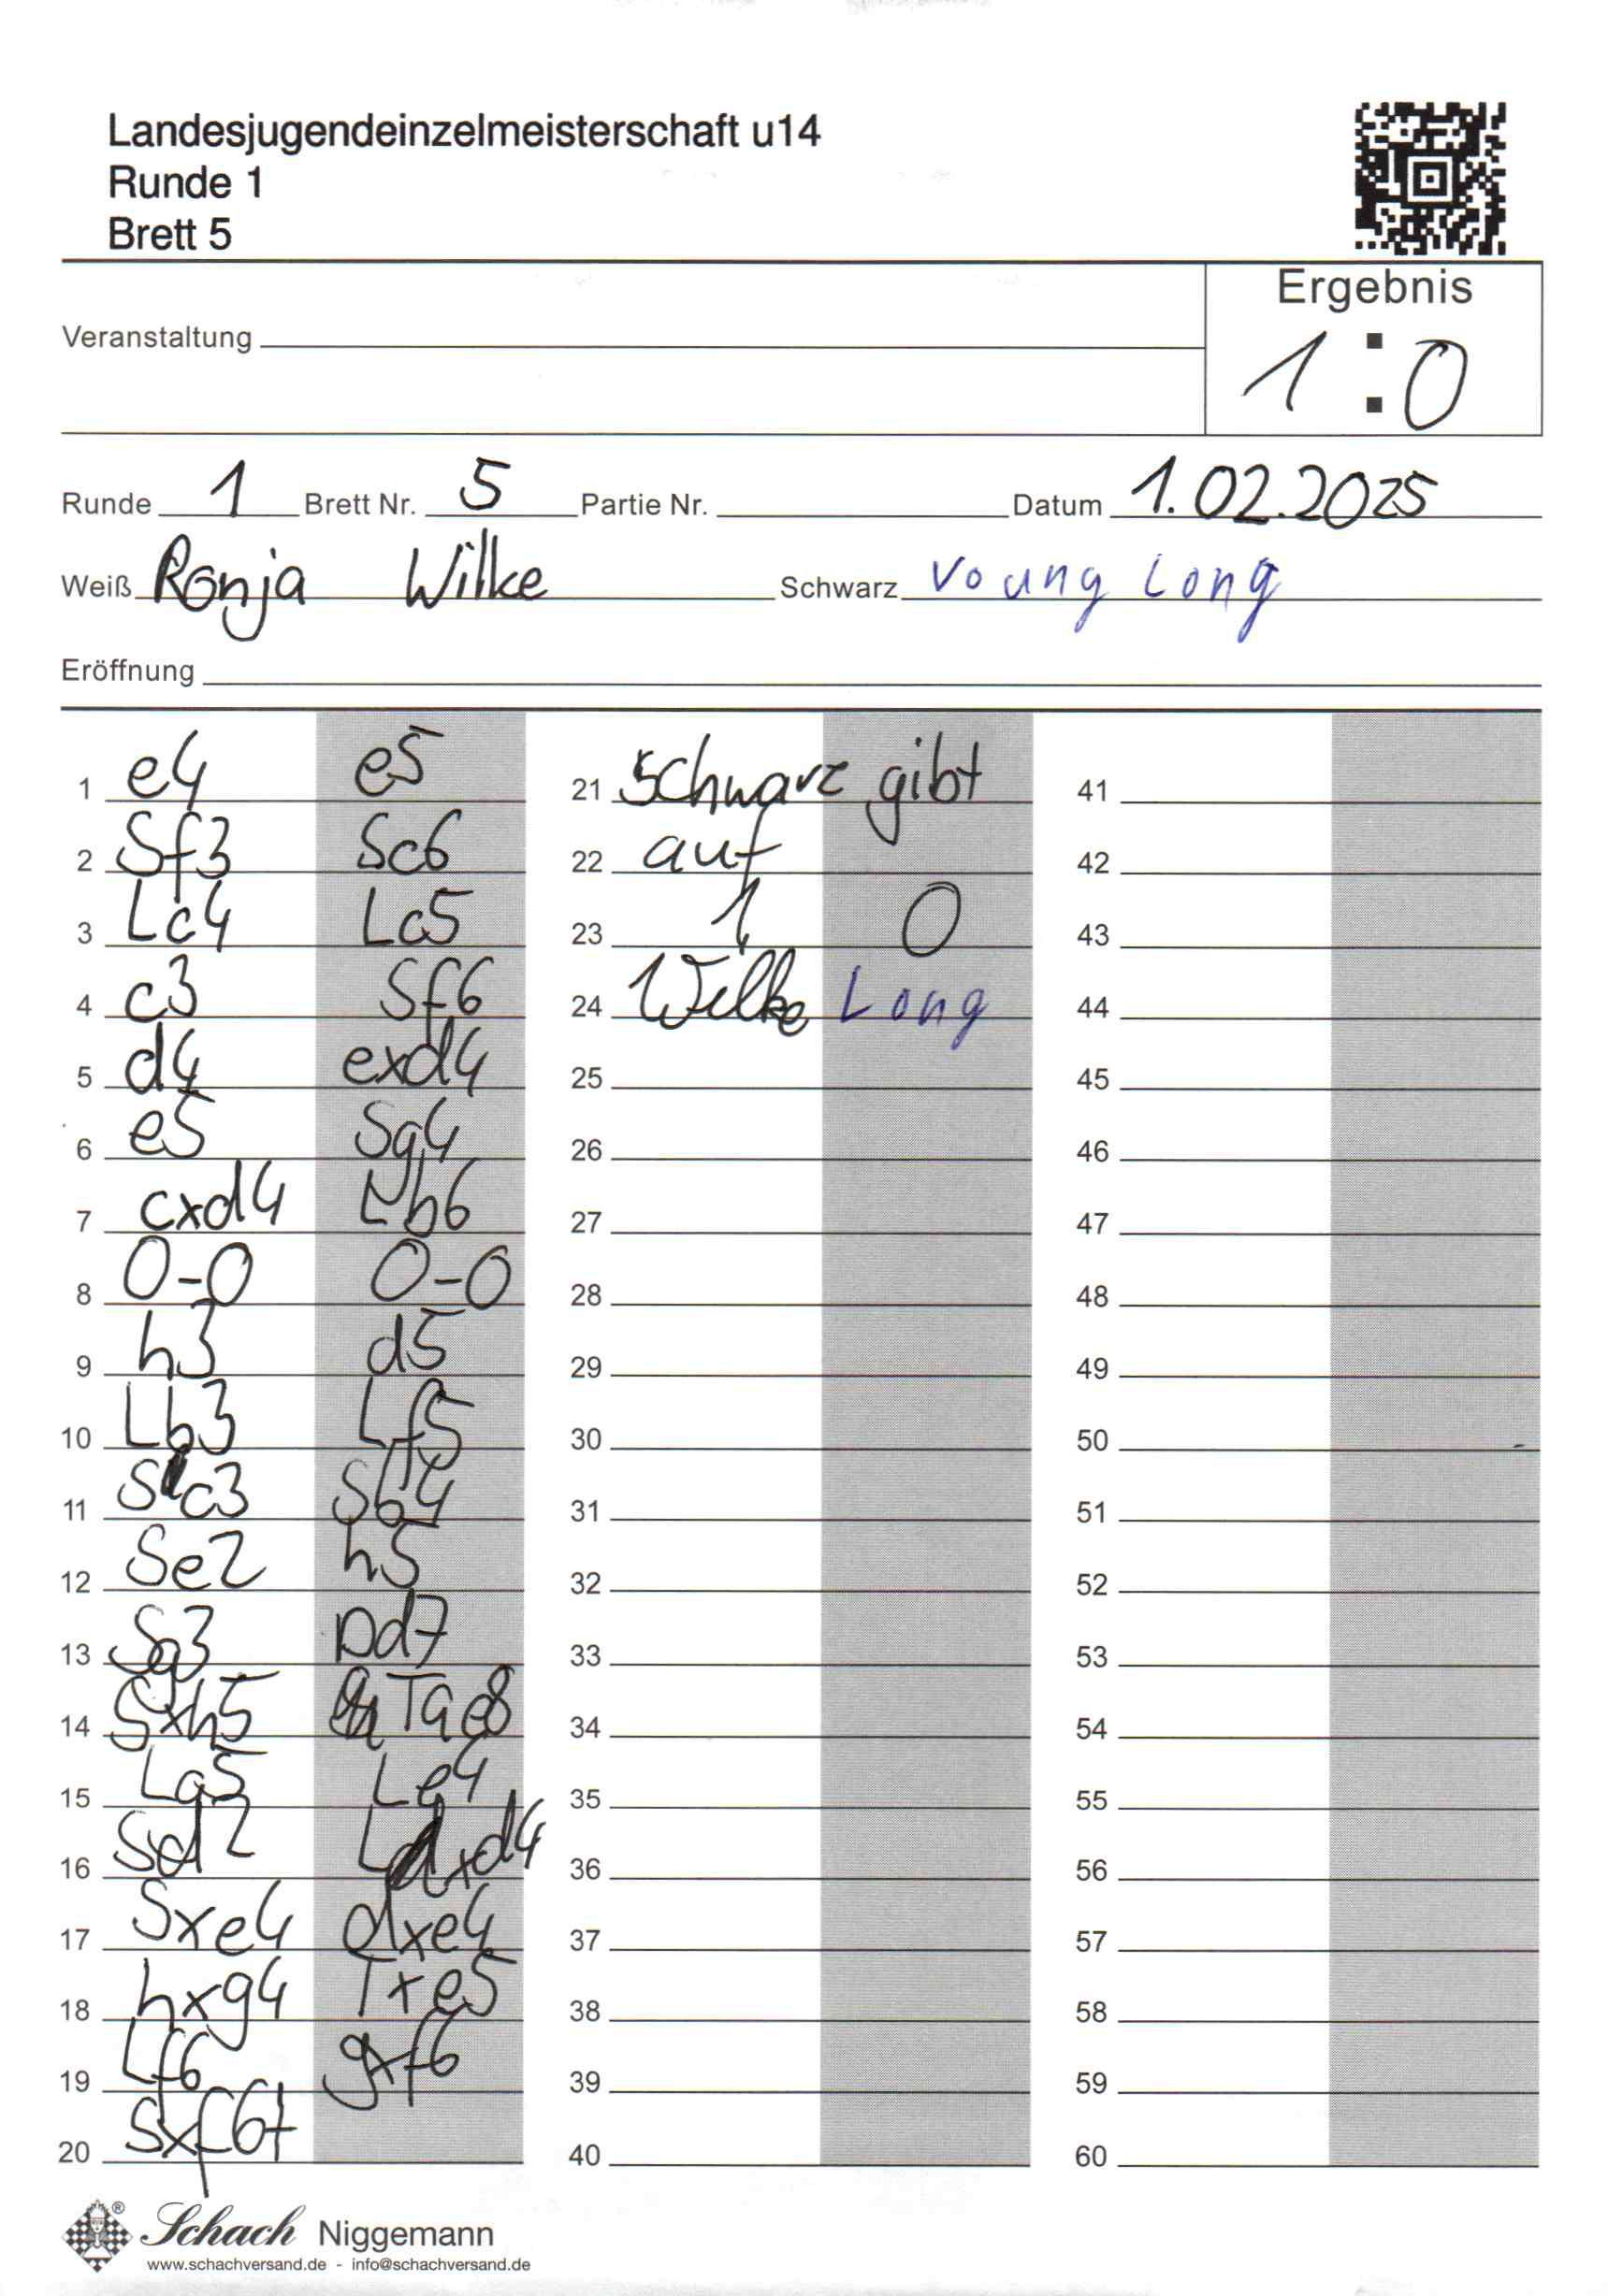 Landesjugendeinzelmeisterschaft u14
Runde 1
Brett 5
Ergebnis
1 : 0
Veranstaltung
Runde 1 Brett Nr. 5 Partie Nr. Datum 1.02.2025
Weiß Ronja Wilke Schwarz Voung Long
Eröffnung
1 e4 e5 21 Schwarz gibt 41
2 Sf3 Sc6 22 auf 42
3 Lc4 Lc5 23 1 0 43
4 c3 Sf6 24 Wilke Long 44
5 d4 exd4 25 45
6 e5 Sg4 26 46
7 cxd4 Lb6 27 47
8 0-0 0-0 28 48
9 h3 d5 29 49
10 Lb3 Lf5 30 50
11 Sc3 Sb4 31 51
12 Se2 h5 32 52
13 Sg3 Dd7 33 53
14 Sxh5 Tae8 34 54
15 Lg5 Le4 35 55
16 Sd2 Lxd4 36 56
17 Sxe4 dxe4 37 57
18 hxg4 Txe5 38 58
19 Lf6 gxf6 39 59
20 Sxf6+ 40 60
Schach Niggemann
www.schachversand.de - info@schachversand.de